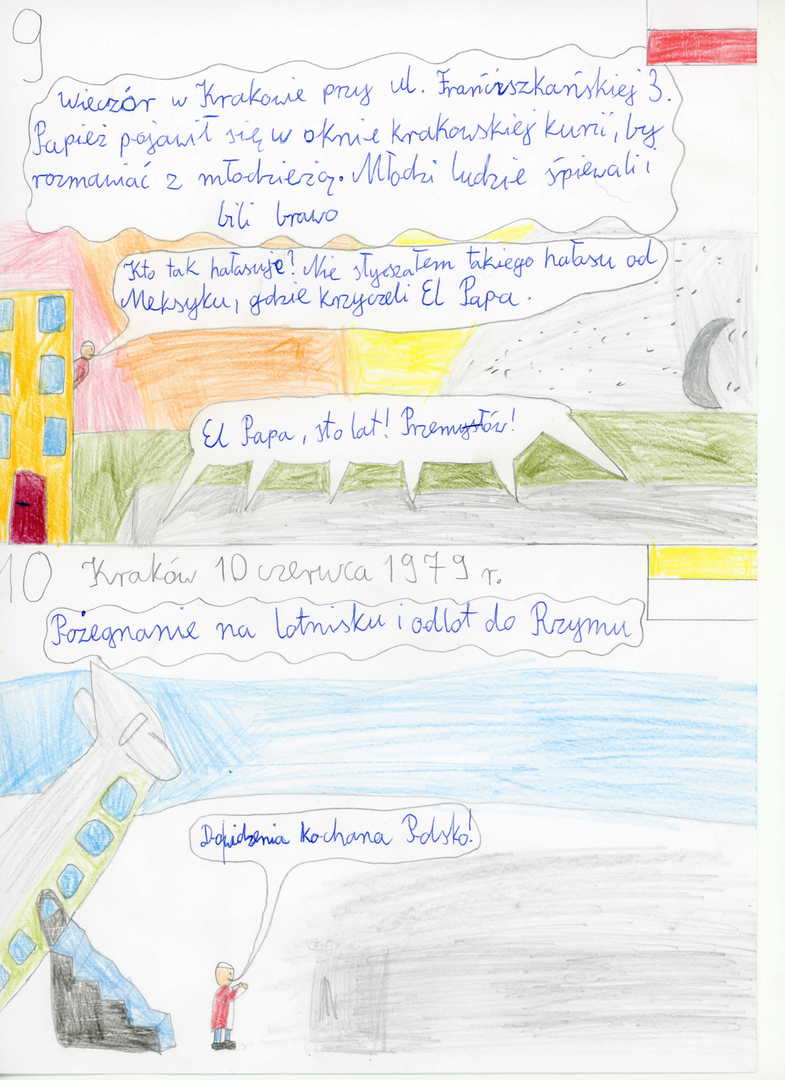 9
Wieczór w Krakowie przy ul. Franciszkańskiej 3.
Papież pojawił się w oknie krakowskiej kurii, by
rozmawiać z młodzieżą. Młodzi ludzie śpiewali i
bili brawo
Kto tak hałasuje? Nie słyszałem takiego hałasu od
Meksyku, gdzie krzyczeli El Papa.
El Papa, sto lat! Przemów!
10 Kraków 10 czerwca 1979 r.
Pożegnanie na lotnisku i odlot do Rzymu
Dowidzenia kochana Polsko!